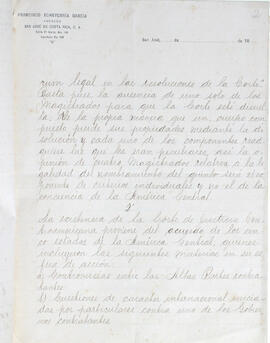 FRANCISCO ECHEVERRIA GARCIA
ABOGADO
SAN JOSE DE COSTA RICA, C. A.
San José, de de 19
rum legal en las resoluciones de la Corte.
Basta pues la ausencia de uno solo de los
Magistrados para que la Corte esté disuel
ta. De la propia manera que un cuerpo com-
puesto pierde sus propiedades mediante la di-
solución y cada uno de los componentes read
quiere las que le eran peculiares, así la o-
pinión de cuatro Magistrados relativa a la le
galidad del nombramiento del quinto será ex
ponente de criterios individuales y no el de la
conciencia de la América Central.
2°
La existencia de la Corte de Justicia Cen-
troamericana proviene del acuerdo de los cin
co estados de la América Central, quienes
incluyeron las siguientes materias en su es
fera de acción:
a) Controversias entre las Altas Partes contra
tantes:
b) Cuestiones de carácter internacional inicia
das por particulares contra uno de los Gobier
nos contratantes